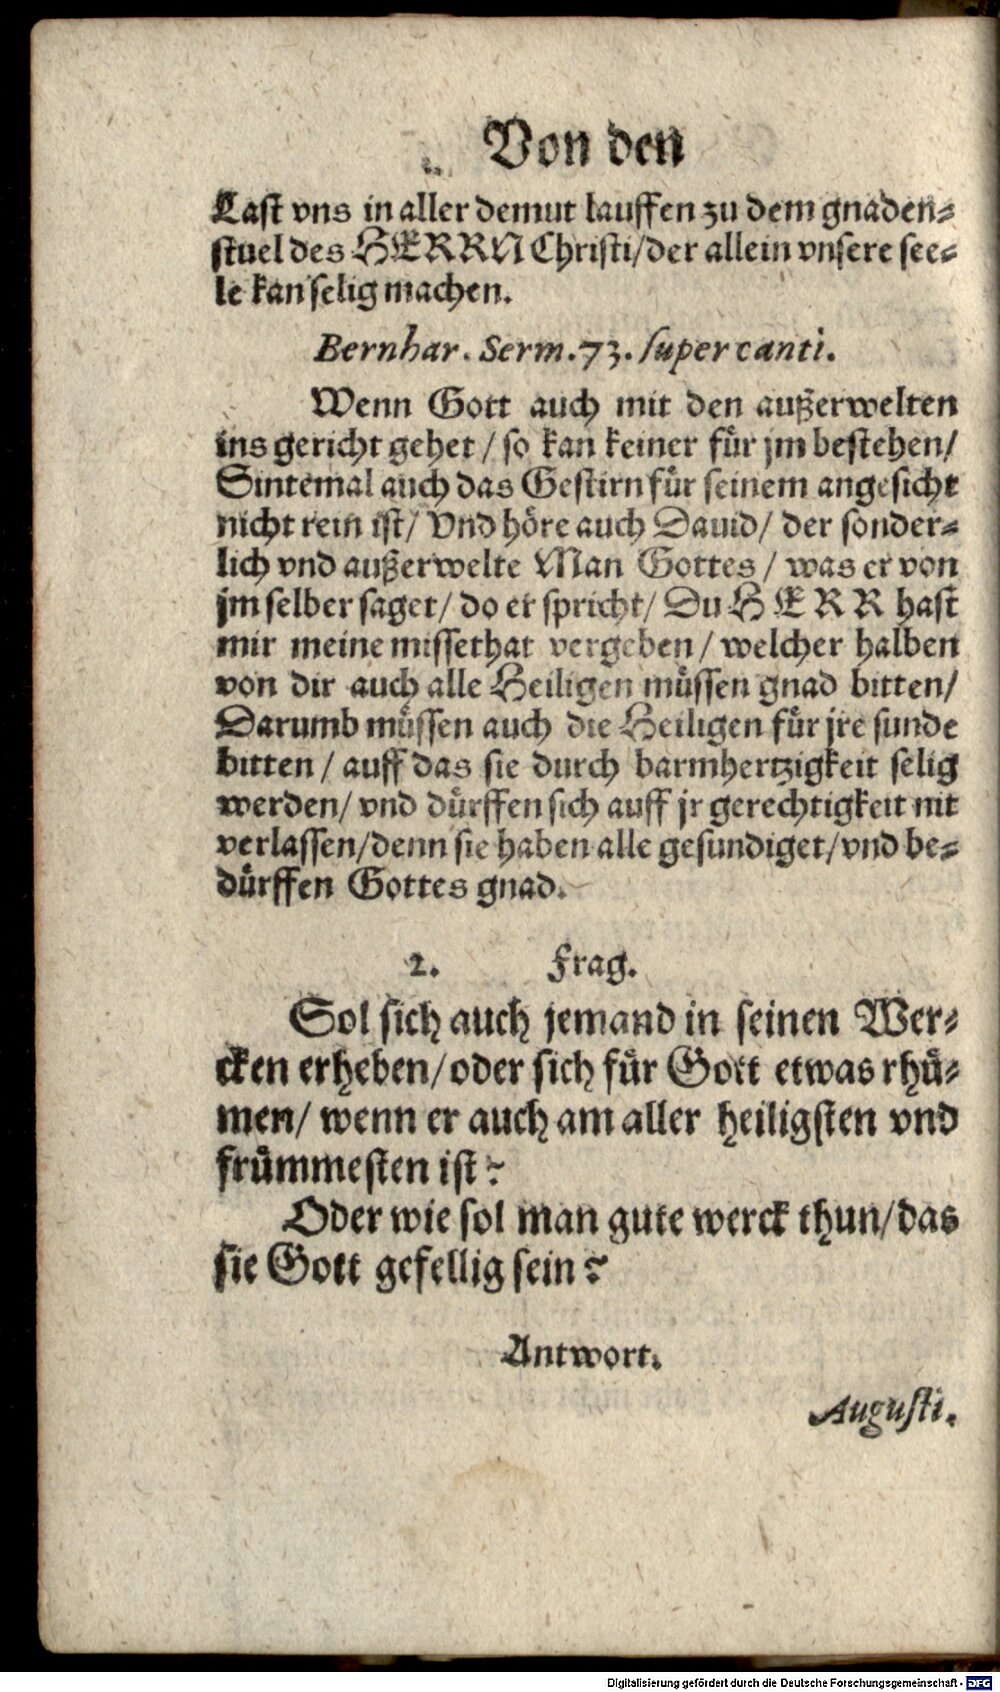 Von den
Last vns in aller demut lauffen zu dem gnaden-
stuel des HERRN Christi/der allein vnsere see-
le kan selig machen.
Bernhar. Serm. 73. super canti.
Wenn Gott auch mit den außerwelten
ins gericht gehet / so kan keiner für jm bestehen/
Sintemal auch das Gestirn für seinem angesicht
nicht rein ist/ Vnd höre auch Dauid/ der sonder-
lich vnd außerwelte Man Gottes / was er von
jm selber saget/ do er spricht/ Du HERR hast
mir meine missethat vergeben / welcher halben
von dir auch alle Heiligen müssen gnad bitten/
Darumb müssen auch die Heiligen für jre sunde
bitten / auff das sie durch barmhertzigkeit selig
werden/ vnd dürffen sich auff jr gerechtigkeit nit
verlassen/denn sie haben alle gesundiget/vnd be-
dürffen Gottes gnad.
2. Frag.
Sol sich auch jemand in seinen Wer-
cken erheben/oder sich für Gott etwas rhü-
men/ wenn er auch am aller heiligsten vnd
frümmesten ist?
Oder wie sol man gute werck thun/das
sie Gott gefellig sein?
Antwort.
Augusti.
Digitalisierung gefördert durch die Deutsche Forschungsgemeinschaft - DFG